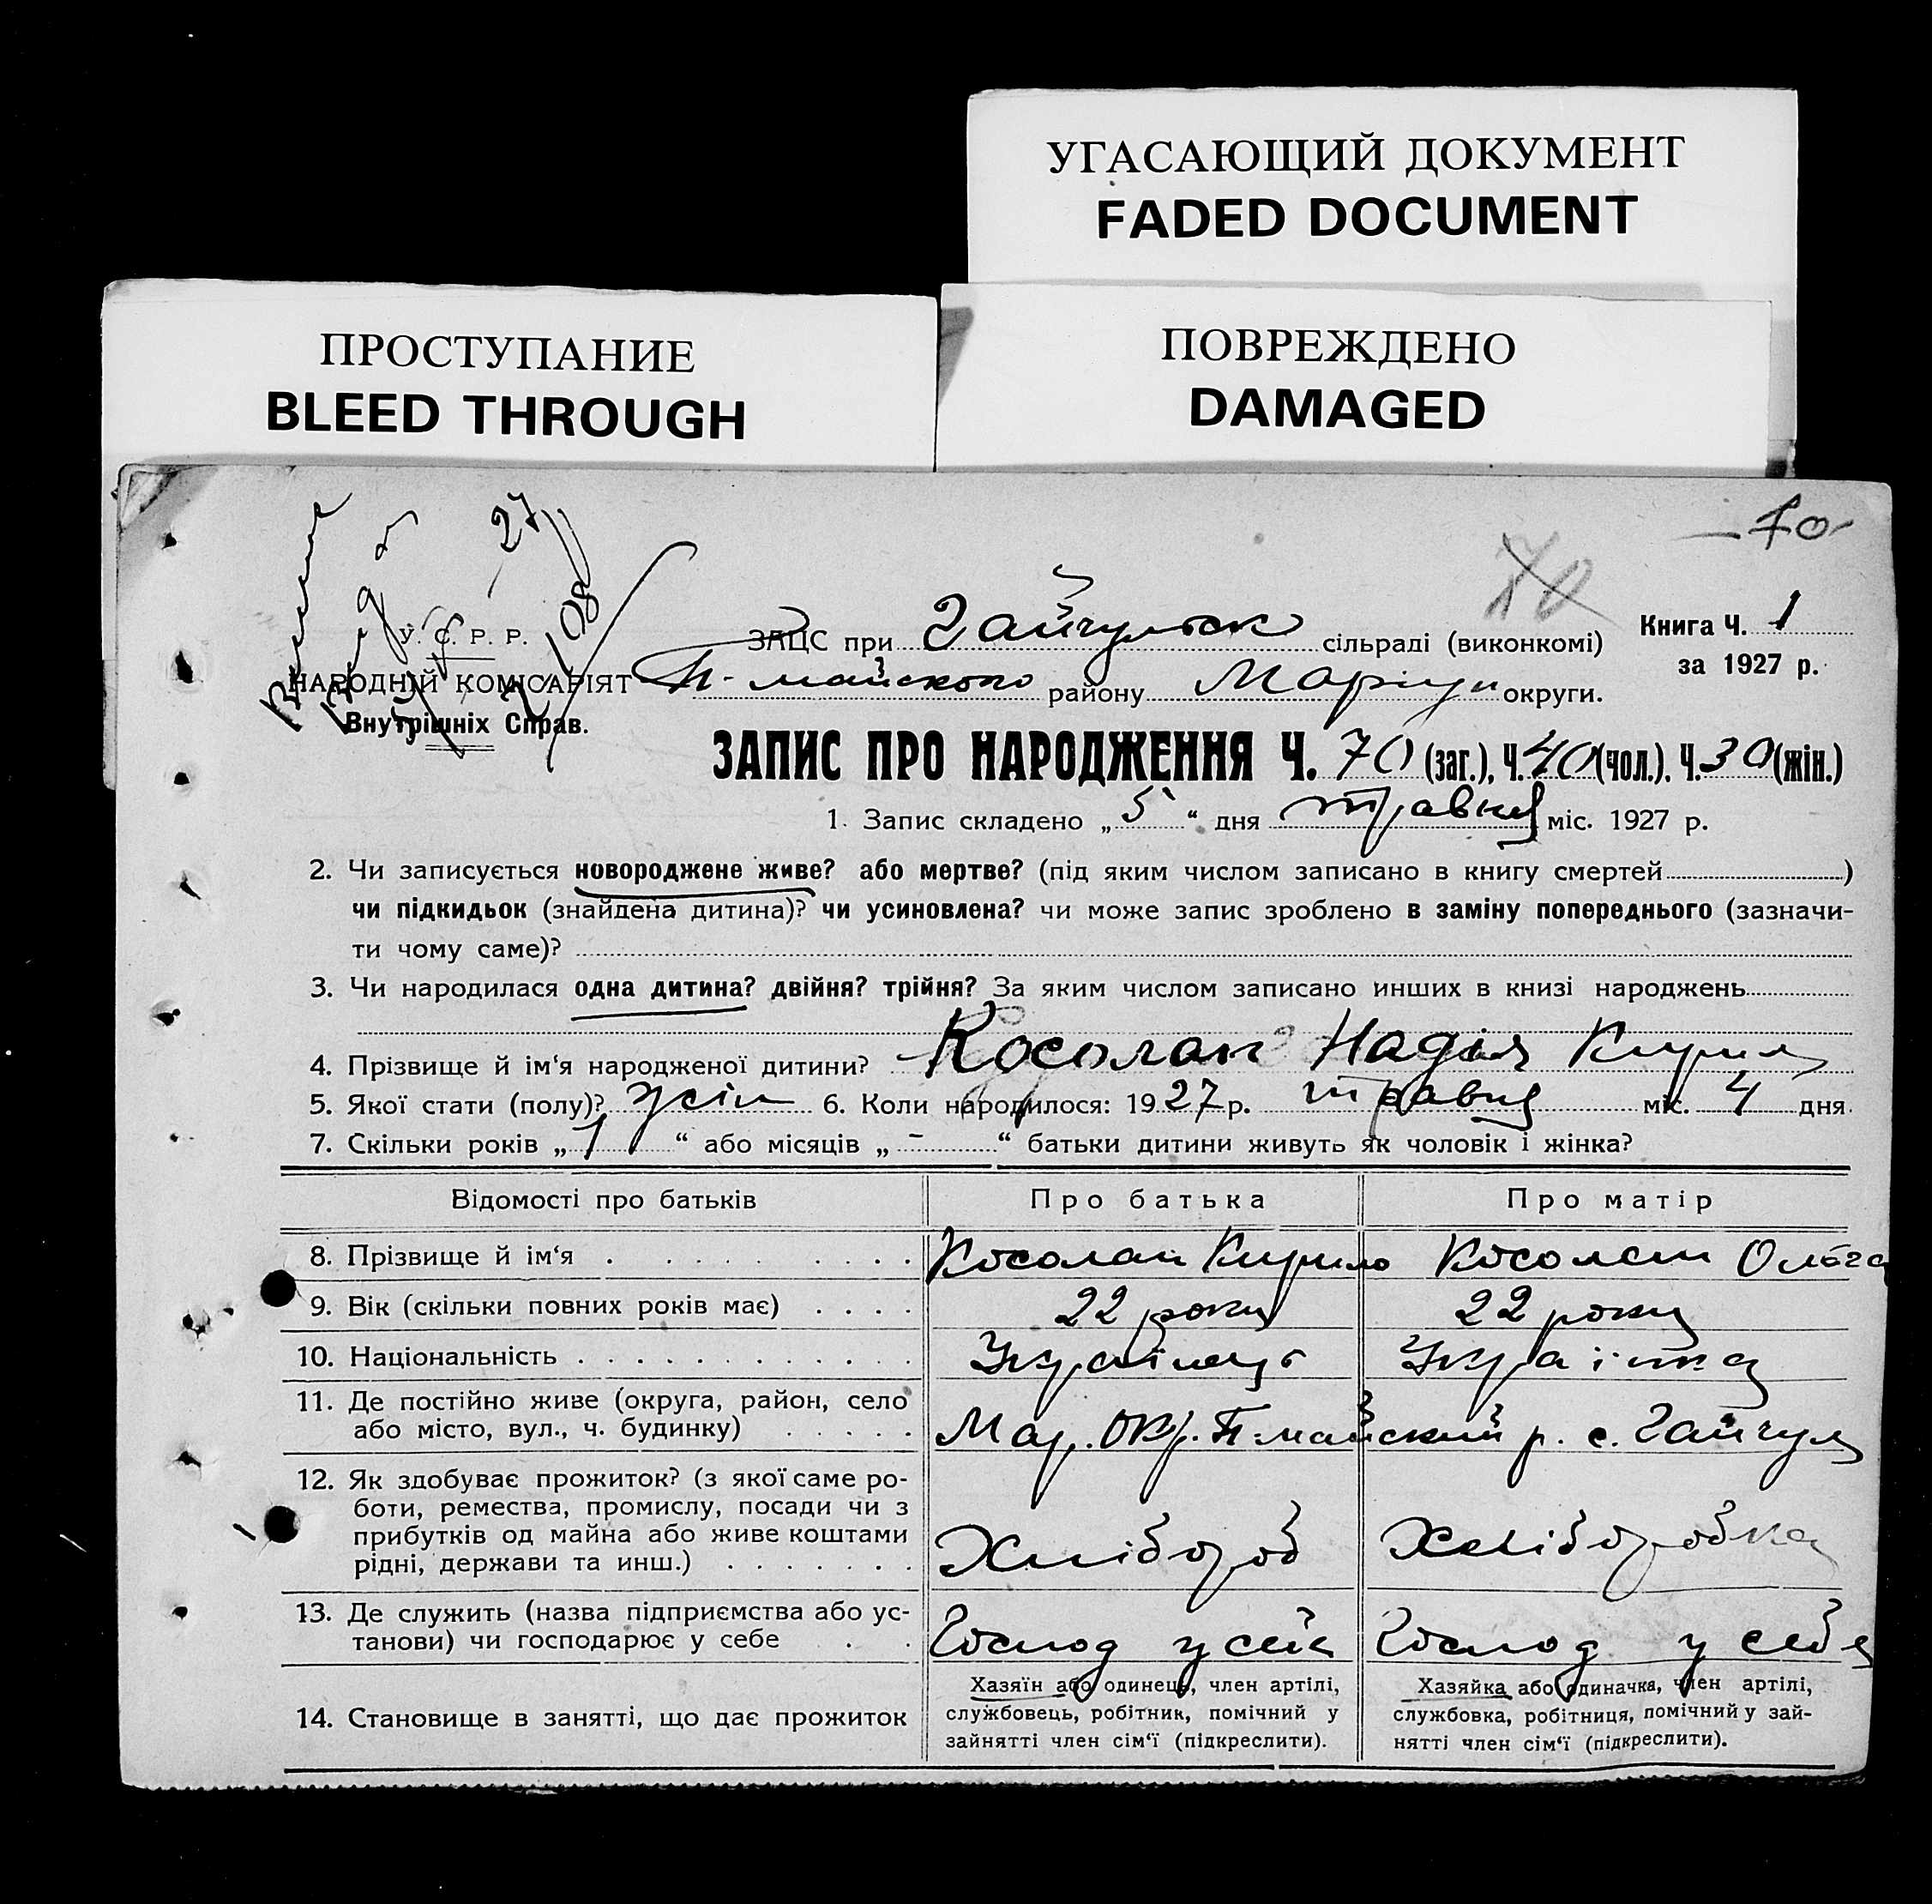 УГАСАЮЩИЙ ДОКУМЕНТ
FADED DOCUMENT
ПРОСТУПАНИЕ
BLEED THROUGH
ПОВРЕЖДЕНО
DAMAGED
70
70
27
У. С. Р. Р.
НАРОДНІЙ КОМІСАРІЯТ
Внутрішніх Справ.
ЗАЦС при Гайчульск сільраді (виконкомі)
П-майського району Маріуп округи.
Книга Ч. 1
за 1927 р.
ЗАПИС ПРО НАРОДЖЕННЯ Ч. 70 (заг.), Ч. 40 (чол.). Ч. 30 (жін.)
1. Запис складено „5“ дня травня міс. 1927 р.
2. Чи записується новороджене живе? або мертве? (під яким числом записано в книгу смертей)
чи підкидьок (знайдена дитина)? чи усиновлена? чи може запис зроблено в заміну попереднього (зазначи-
ти чому саме)?
3. Чи народилася одна дитина? двійня? трійня? За яким числом записано инших в книзі народжень
4. Прізвище й ім‘я народженої дитини? Косолап Надія Кирил
5. Якої стати (полу)? жін 6. Коли народилося: 1927 р. травня міс. 4 дня.
7. Скільки років „1“ або місяців „-“ батьки дитини живуть як чоловік і жінка?
Відомості про батьків Про батька Про матір
8. Прізвище й ім‘я Косолап Кирило Косолап Ольга
9. Вік (скільки повних років має) 22 роки 22 роки
10. Національність Українець Українка
11. Де постійно живе (округа, район, село
або місто, вул., ч. будинку) Мар. окр. П-майський р. с. Гайчул
12. Як здобуває прожиток? (з якої саме ро-
боти, ремества, промислу, посади чи з
прибутків од майна або живе коштами
рідні, держави та инш.) Хлібороб Хліборобка
13. Де служить (назва підприємства або ус-
танови) чи господарює у себе Господ у себе Господ у себе
14. Становище в занятті, що дає прожиток
Хазяїн або одинець, член артілі,
службовець, робітник, помічний у
зайнятті член сім‘ї (підкреслити).
Хазяйка або одиначка, член артілі,
службовка, робітниця, помічний у зай-
нятті член сім‘ї (підкреслити).